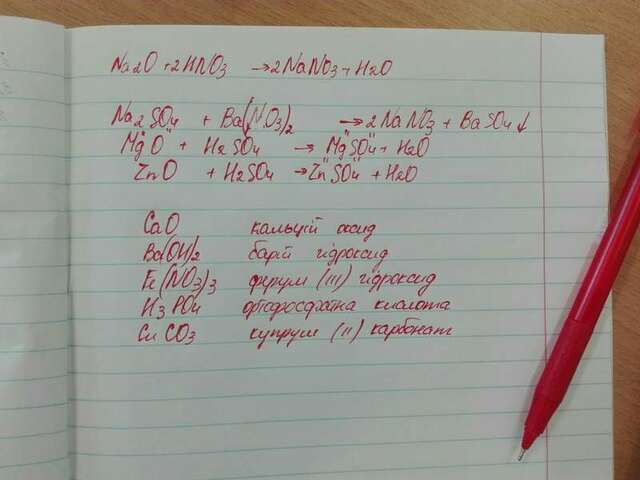 Na2O + 2HNO3 → 2NaNO3 + H2O
Na2SO4 + Ba(NO3)2 → 2NaNO3 + BaSO4↓
MgO + H2SO4 → MgSO4 + H2O
ZnO + H2SO4 → ZnSO4 + H2O
CaO кальцій оксид
Ba(OH)2 барій гідроксид
Fe(NO3)3 ферум (III) гідроксид
H3PO4 ортофосфатна кислота
CuCO3 купрум (II) карбонат